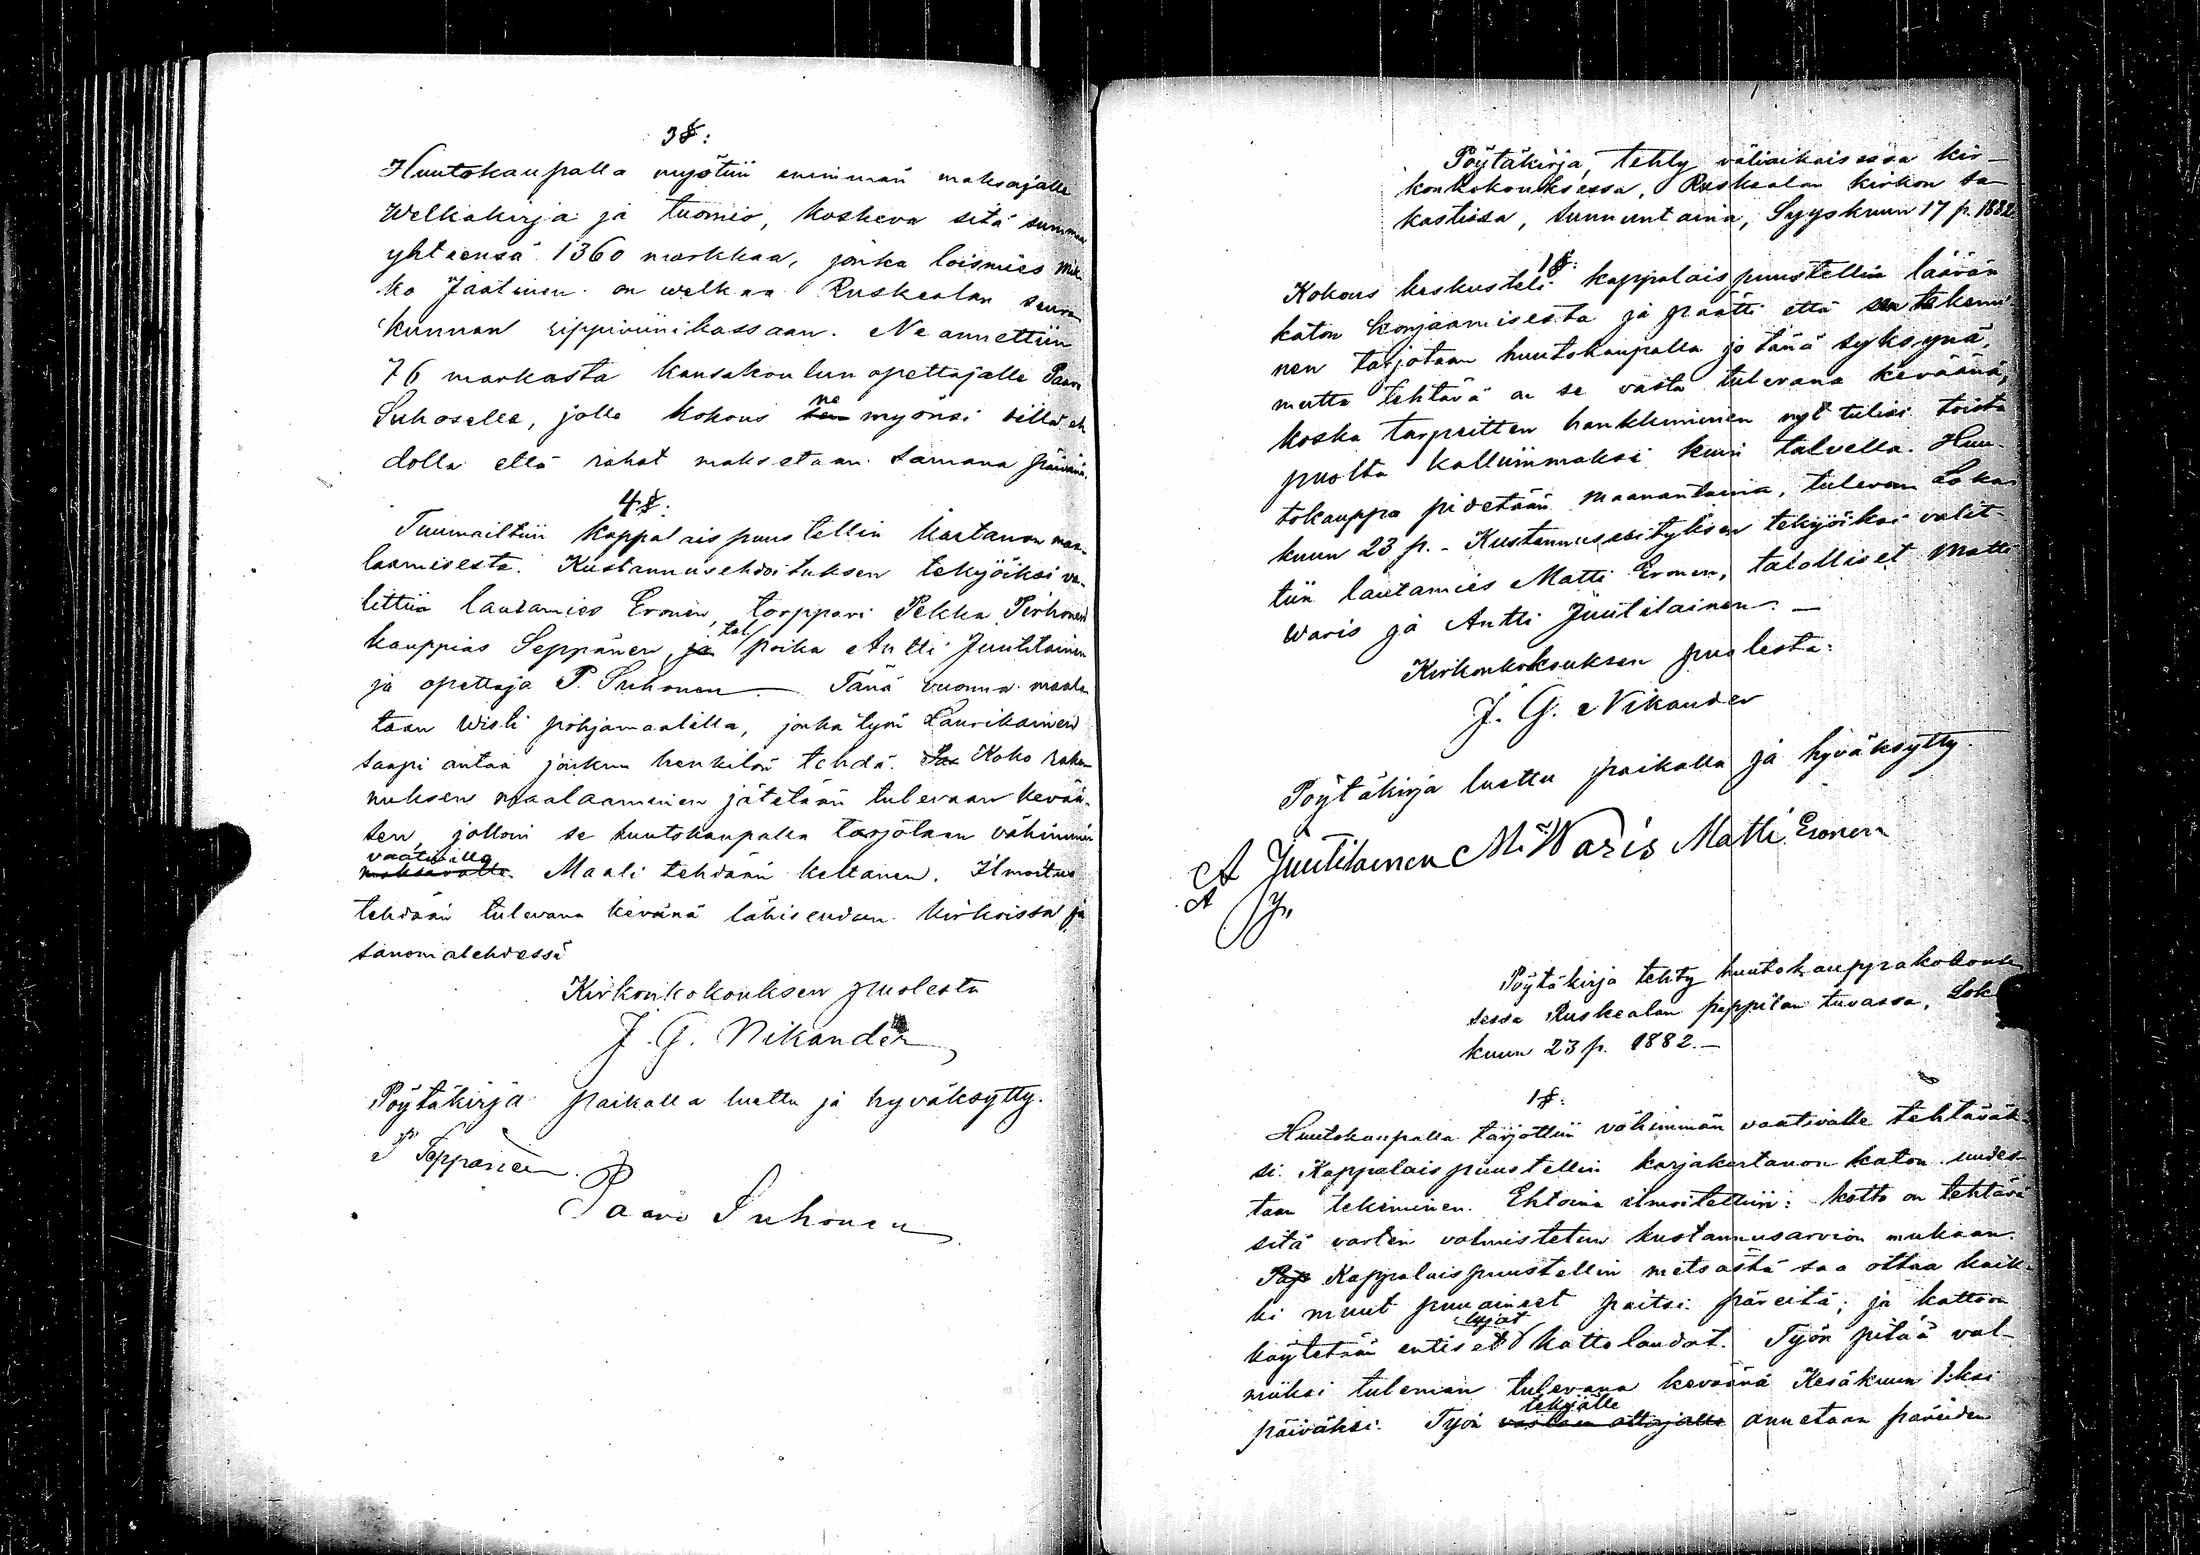 3 §:
Huutokaupalla myötiin enimmän maksajalle
Welkakirja ja tuomio, koskeva sitä summaa
yhteensä 1360 markkaa, jonka loismies Mik-
ko Jäätinen on welkaa Ruskealan seura
kunnan rippiviinikassaan. Ne annettiin
76 markasta kansakoulun opettajalle Paavo
Suhoselle, jolle kokous ne myönsi sillä eh
dolla että rahat maksetaan samana päivänä.
4 §:
Tuumailtiin kappalaispuustellin kartanon maa-
laamisesta. Kustannusehdoituksen tekijöiksi va-
littiin lautamies Eronen, torppari Pekka Pirhonen
kauppias Seppänen, ja tal. poika Antti Juutilainen
ja opettaja P. Suhonen — Tänä vuonna maala
taan wisti pohjamaalilla, jonka työn Laurikainen
saapi antaa jonkun henkilön tehdä. Koko raken
nuksen maalaaminen jätetään tulevaan kevää-
sen, jolloin se huutokaupalla tarjotaan vähimmin
vaativalle
maksavalle. Maali tehdään keltanen. Ilmoitus
tehdään tulevana kevänä lähiseudun kirkoissa ja
sanomalehdessä
Kirkonkokouksen puolesta
J. G. Nikander
Pöytäkirja paikalla luettu ja hyväksytty.
P Seppänen.
Paavo Suhonen
Pöytäkirja, tehty väliaikaisessa kir-
konkokouksessa, Ruskealan kirkon sa-
kastissa, sunnuntaina, Syyskuun 17 p. 1882
1 §:
Kokous keskusteli kappalaispuustellin läävän
katon korjaamisesta ja päätti että sen tekemi
nen tarjotaan huutokaupalla jo tänä syksynä,
mutta tehtävä on se vasta tulevana keväänä,
koska tarpeitten hankkiminen nyt tulisi toista
puolta kalliimmaksi kuin talvella. Huu-
tokauppa pidetään maanantaina, tulevan Loka
kuun 23 p. - Kustannusesityksen tekijöiksi valit-
tiin lautamies Matti Eronen, talolliset Matti
Waris ja Antti Juutilainen. —
Kirkonkokouksen puolesta:
J. G. Nikander
Pöytäkirja luettu paikalla ja hyväksytty.
A Juutilainen M. Waris Matti Eronen
A J
Pöytäkirja tehty huutokauppakokouk
sessa Ruskealan pappilan tuvassa, Lok
kuun 23 p. 1882. —
1 §:
Huutokaupalla tarjottiin vähimmän vaativalle tehtäväk-
si Kappalaispuustellin karjakartanon katon uudes-
taan tekeminen. Ehtoina ilmoitettiin: katto on tehtävä
sitä varten valmistetun kustannusarvion mukaan.
Pap Kappalaispuustellin metsästä saa ottaa kaik-
ki muut puuaineet paitsi päreitä; ja kattoon
lujat
käytetään entiset kattolaudat. Työn pitää val-
miiksi tuleman tulevana keväänä Kesäkuun 1:ksi
tekijälle
päiväksi. Työn vastaan ottajalle annetaan päreiden